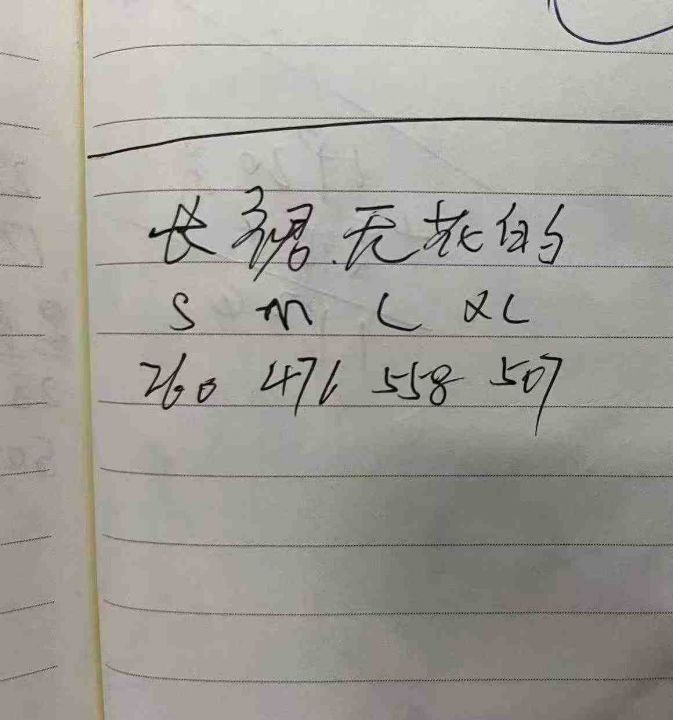 长裙.无花的
S M L XL
260 476 558 507